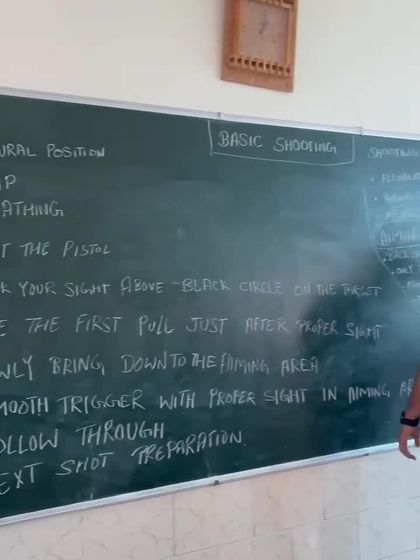 BASIC SHOOTING
URAL POSITION
IP
ATHING
T THE PISTOL
K YOUR SIGHT ABOVE BLACK CIRCLE ON THE TARGET
E THE FIRST PULL JUST AFTER PROPER SIGHT
WLY BRING DOWN TO THE AIMING AREA
MOOTH TRIGGER WITH PROPER SIGHT IN AIMING AR
OLLOW THROUGH
EXT SHOT PREPARATION
SHOOTING